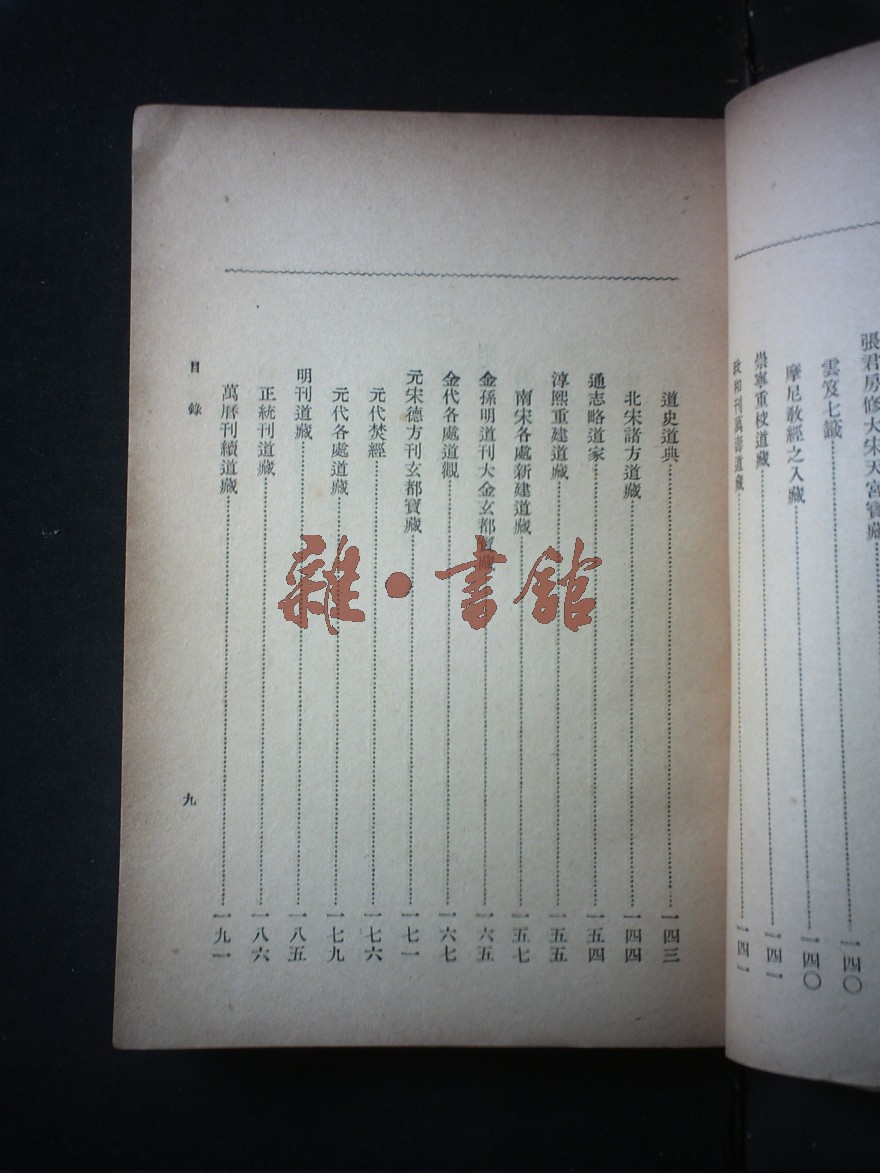 張君房修大宋天宮寶藏
雲笈七籤 一四〇
摩尼教經之入藏 一四〇
崇寧重校道藏 一四一
政和刊萬壽道藏 一四一
道史道典 一四三
北宋諸方道藏 一四四
通志略道家 一五四
淳熙重建道藏 一五五
南宋各處新建道藏 一五七
金孫明道刊大金玄都寶藏 一六五
金代各處道觀 一六七
元宋德方刊玄都寶藏 一七一
元代焚經 一七六
元代各處道藏 一七九
明刊道藏 一八五
正統刊道藏 一八六
萬曆刊續道藏 一九一
目錄
九
雜·書館